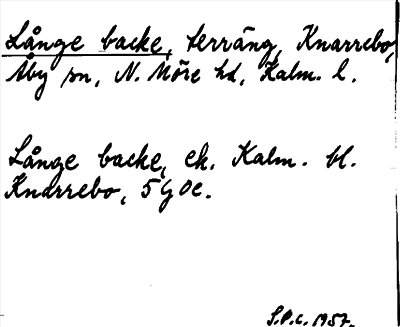 Långe backe, terräng, Knarrebo,
Åby sn, N. Möre hd, Kalm. l.
Långe backe, ek. Kalm. bl.
Knarrebo, 5 G 0 e.
S.P.C. 1957.